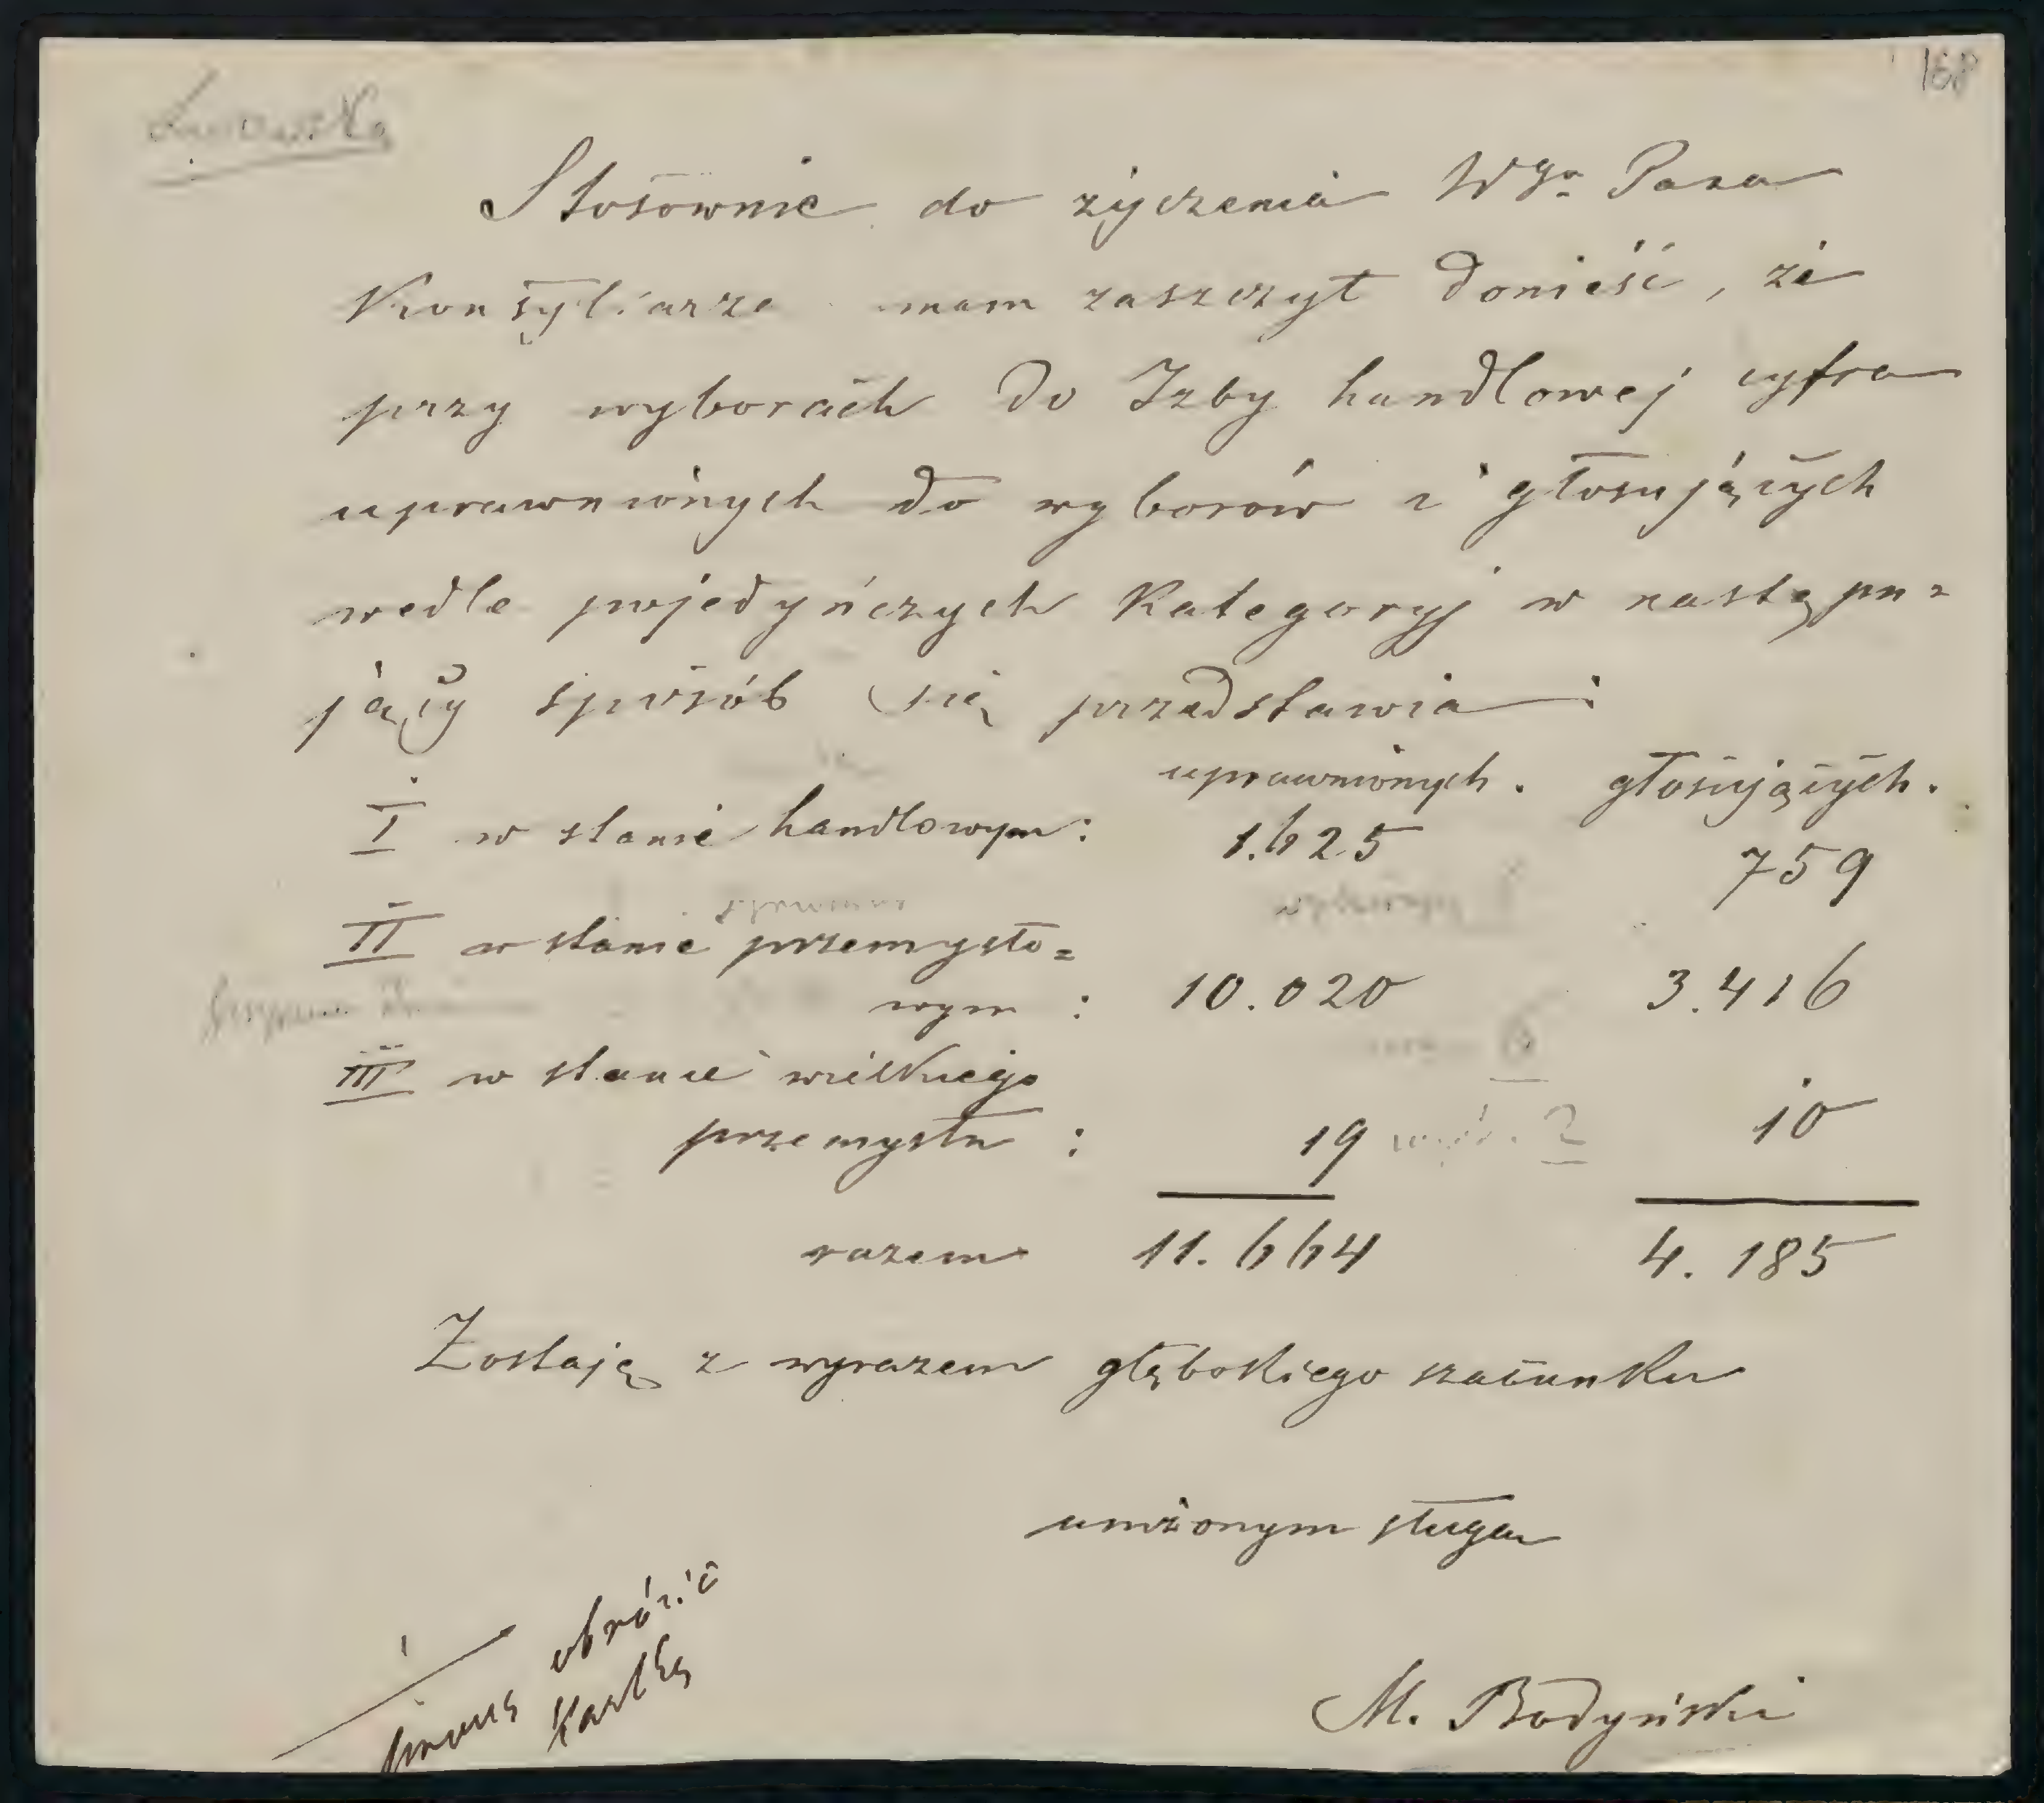 168
Stosownie do życzenia WGo Pana
Konsyliarza mam zaszczyt donieść, że
przy wyborach do Izby handlowej cyfra
uprawnionych do wyborów i głosujących
wedle pojedyńczych kategoryj w nastepu=
jący sposób się przedstawia:
uprawnionych. głosujących.
I w stanie handlowym: 1.625 759
II w stanie przemysło=
wym : 10.020 3.416
III w stanie wielkiego
przemysłu : 19 wyb. 2 10
razem 11.664 4.185
Zostaję z wyrazem głębokiego szacunku
uniżonym sługą
M. Bodyński
proszę obrócić
kartkę